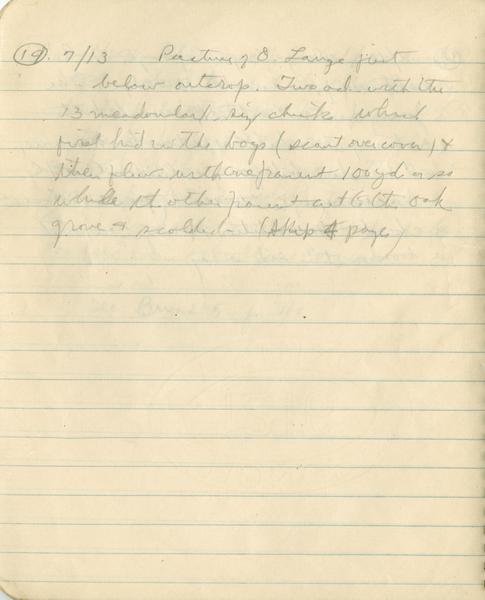 (19). 7/13 Pasture of O. Lange just
below outcrop. Two ad with the
13 meadowlark size chicks which
first hid in the bogs (scant overcover) &
then flew with one parent 100 yd or so
while the other parent went to the oak
grove & scolded (Skip 4 page)